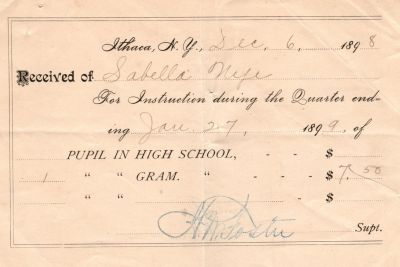 Ithaca, N. Y., Dec. 6, 1898
Received of Sabella Nye
For Instruction during the Quarter end-
ing Jan. 27, 1899, of
PUPIL IN HIGH SCHOOL, - - $
1 " " GRAM. " - - $ 7.50
" " - - $
Foster Supt.